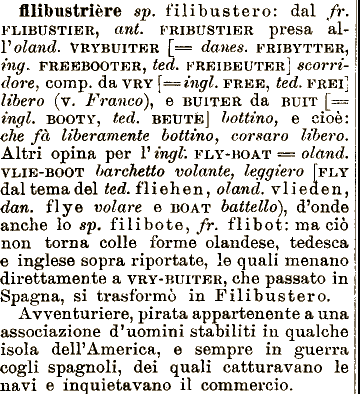 filibustrière sp. filibustero: dal fr.
FLIBUSTIER, ant. FRIBUSTIER presa al-
l'oland. VRYBUITER [= danes. FRIBYTTER,
ing. FREEBOOTER, ted. FREIBEUTER] scorri-
dore, comp. da VRY [= ingl. FREE, ted. FREI]
libero (v. Franco), e BUITER da BUIT [=
ingl. BOOTY, ted. BEUTE] bottino, e cioè:
che fà liberamente bottino, corsaro libero.
Altri opina per l'ingl: FLY-BOAT = oland.
VLIE-BOOT barchetto volante, leggiero [FLY
dal tema del ted. fliehen, oland. vlieden,
dan. flye volare e BOAT battello), d'onde
anche lo sp. filibote, fr. flibot: ma ciò
non torna colle forme olandese, tedesca
e inglese sopra riportate, le quali menano
direttamente a VRY-BUITER, che passato in
Spagna, si trasformò in Filibustero.
Avventuriere, pirata appartenente a una
associazione d'uomini stabiliti in qualche
isola dell'America, e sempre in guerra
cogli spagnoli, dei quali catturavano le
navi e inquietavano il commercio.